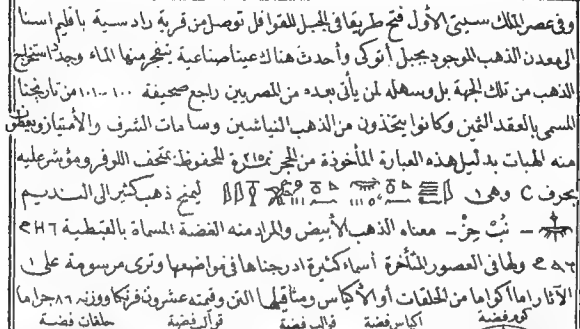 وفى عصر الملك سيتى الأول فتح طريقا فى الجبل للقوافل توصل من قرية رادسية باقليم اسنا
الى معدن الذهب الموجود بجبل أتوكى وأحدث هناك عينا صناعية يتفجر منها الماء وجدّ استخراج
الذهب من تلك الجهة بل وسهله لمن يأتى بعده من المصريين راجع صحيفة ١٠٠ ـ ١٠١ من تاريخنا
المسمى بالعقد الثمين وكانوا يتخذون من الذهب النياشين وسامات الشرف والامتياز ويعطون
منه الهبات بدليل هذه العبارة المأخوذة من الحجر نمرة ٢١٥ المحفوظ بمتحف اللوفر ومؤشر عليه
بحرف C وهى ١ ليمنح ذهب كثير الى النديم
ـ نُبْ حِزْ ـ معناه الذهب الأبيض والمراد منه الفضة المسماة بالقبطية
ولها فى العصور المتأخرة أسماء كثيرة ادرجناها فى مواضعها وترى مرسومة على ١
الآثار اما أكواما من الحلقات أو الأكياس ومثاقيلها التن وقيمته عشرون فرنكا ووزنه ٨٦ جراما
كوم فضية اكياس فضية قوالب فضية قوالب فضية حلقات فضية